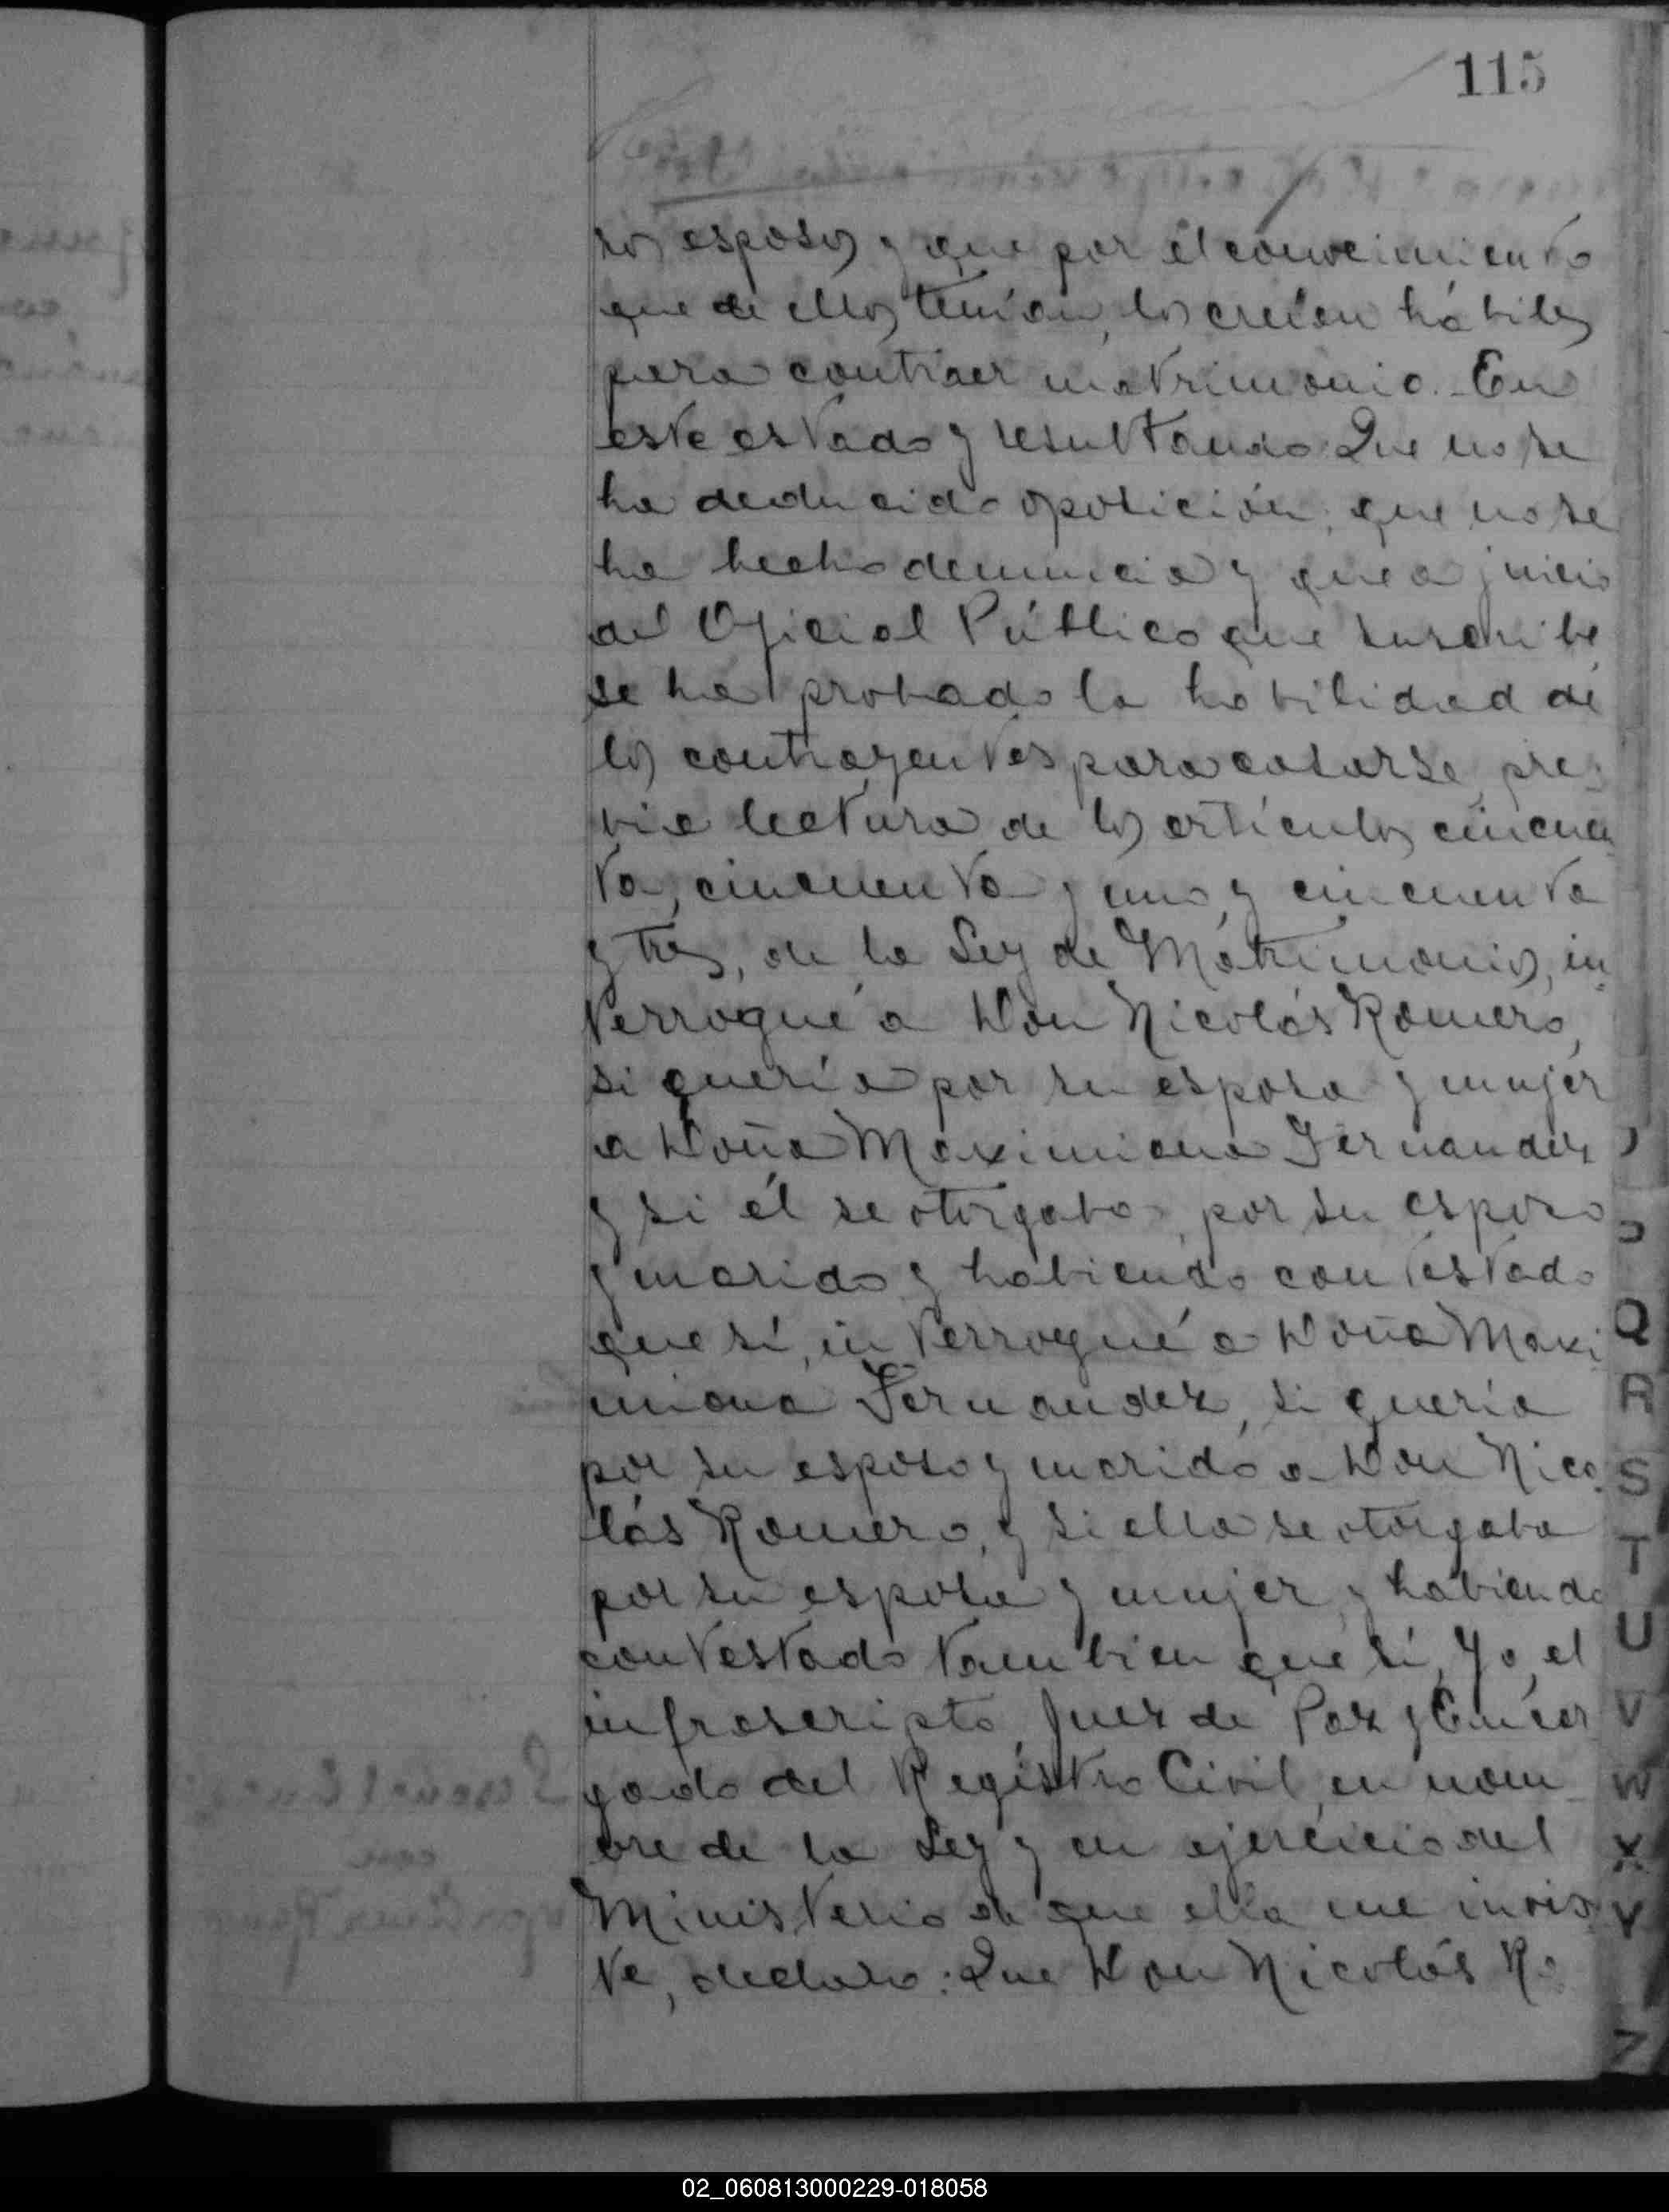 115
ros esposos y que por el conocimiento
que de ellos tenían, los creían hábiles
para contraer matrimonio.- En
este estado y resultando: Que no se
ha deducido oposición, que no se
ha hecho denuncia y que a juicio
del Oficial Público que suscribe
se ha probado la habilidad de
los contrayentes para casarse, pre-
via lectura de los artículos cincuen
ta, cincuenta y uno, y cincuenta
y tres, de la Ley de Matrimonio, in-
terrogué a Don Nicolás Romero,
si quería por su esposa y mujer
a Doña Maximiana Fernandez
y si él se otorgaba, por su esposo
y marido y habiendo contestado
que sí, interrogué a Doña Maxi
miana Fernandez, si quería
por su esposo y marido a Don Nico-
lás Romero, y si ella se otorgaba
por su esposa y mujer y habiendo
contestado tambien que sí, Yo, el
infrascripto, Juez de Paz y Encar
gado del Registro Civil, en nom-
bre de la Ley y en ejercicio del
Ministerio de que ella me invis-
te, declaro: Que Don Nicolás Ro
Q
R
S
T
U
V
W
X
Y
Z
02_060813000229-018058